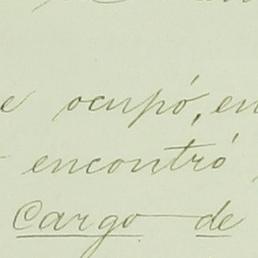 e ocupó, en
encontró
Cargo de